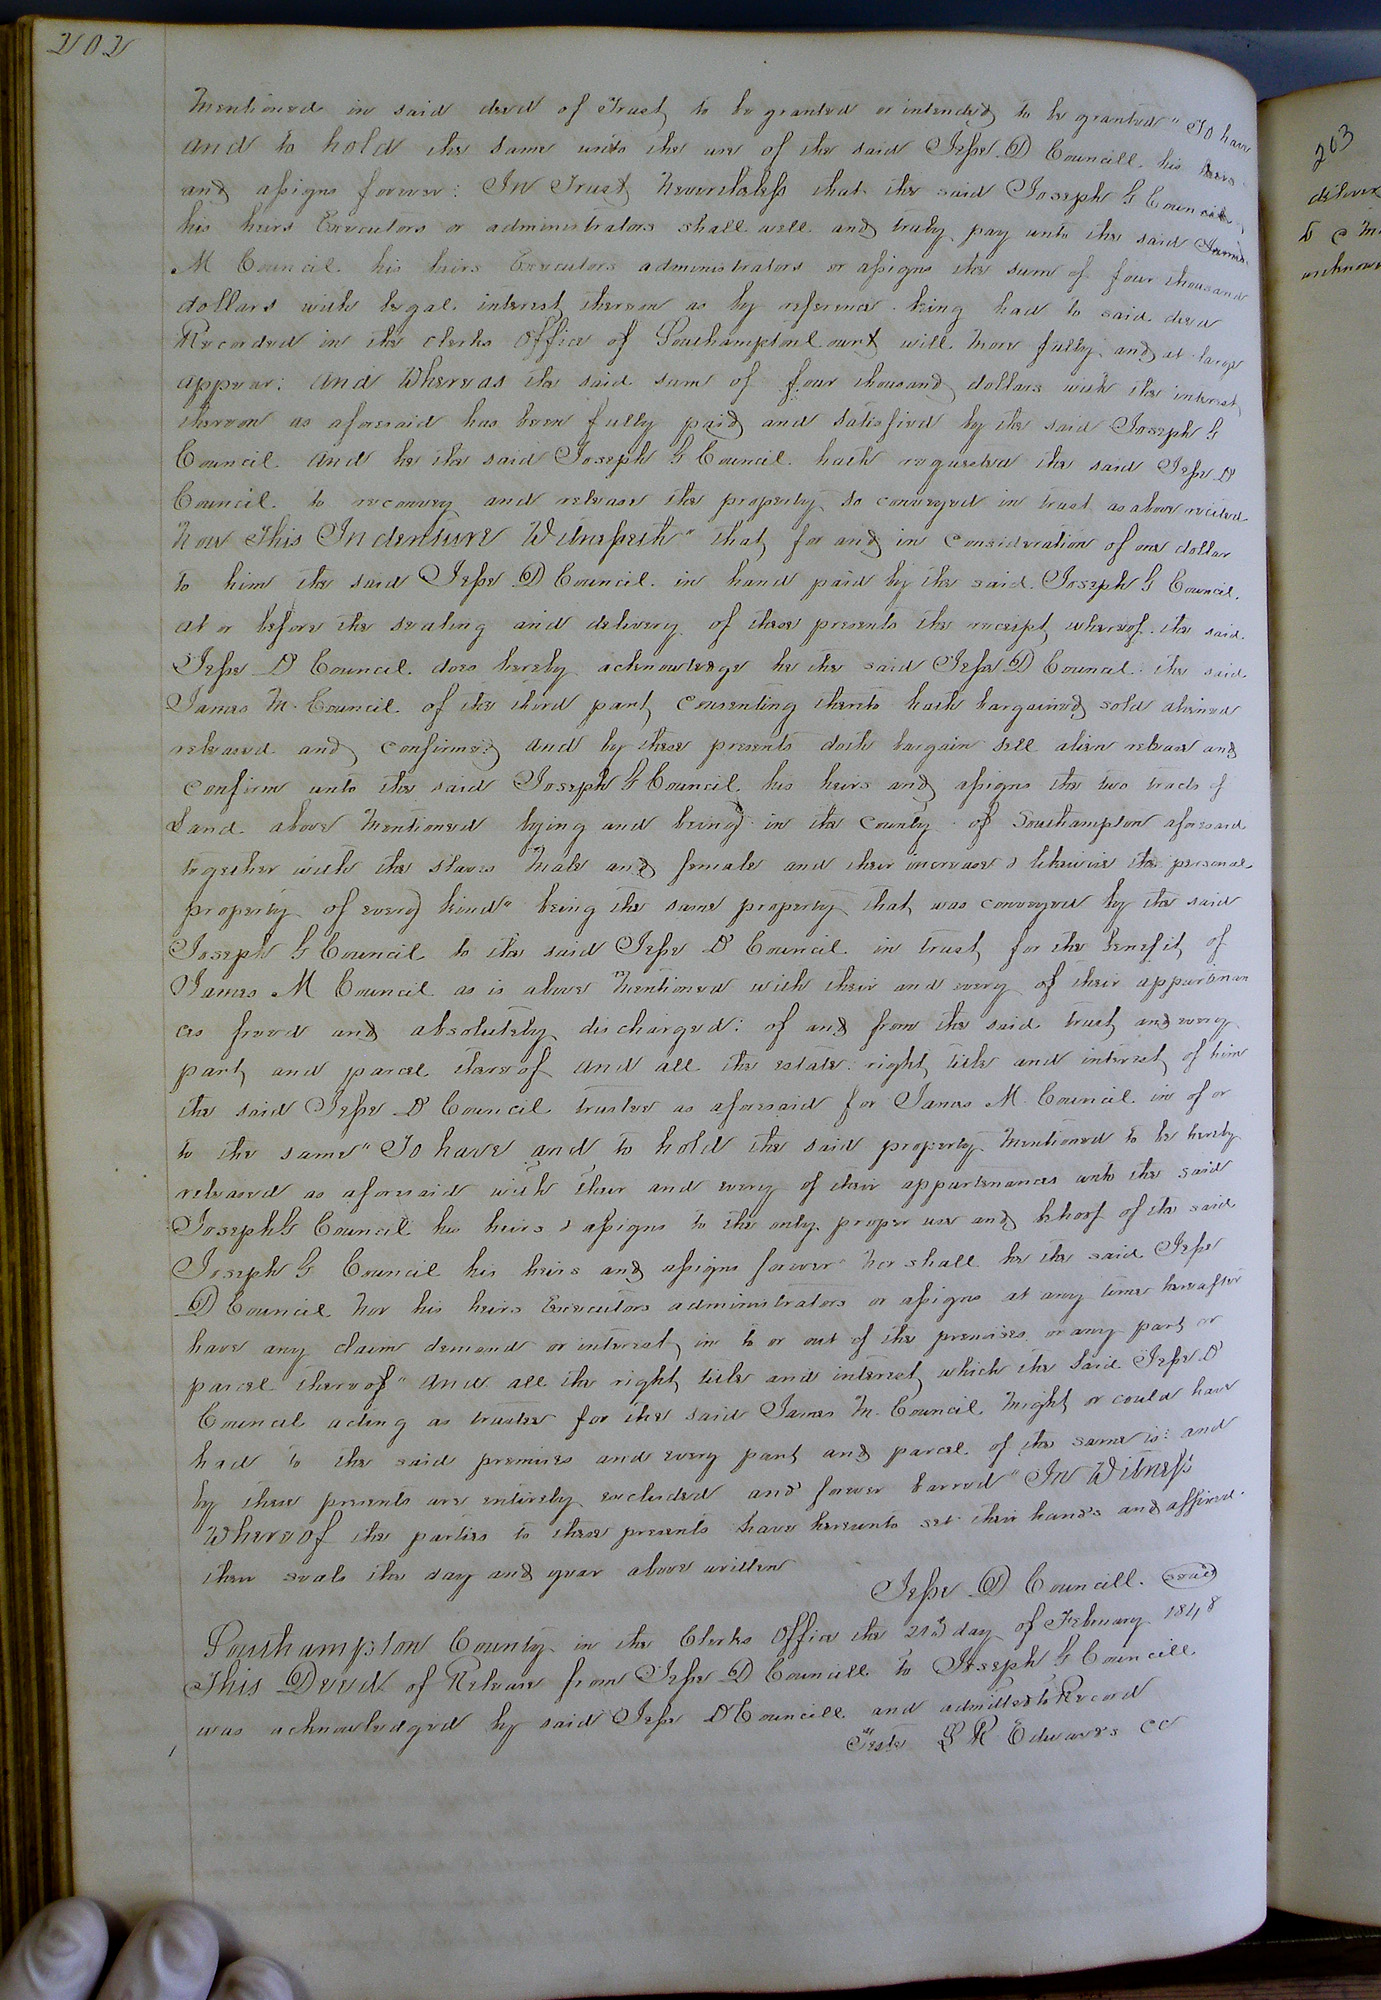 202
Mentioned in said deed of Trust to be granted or intended to be granted" To have
and to hold the same unto the use of the said Jesse D Councill his heirs
and assigns forever: In Trust Nevertheless that the said Joseph G Council
his heirs Executors or administrators shall well and truly pay unto the said James
M Council his heirs Executors administrators or assigns the sum of four thousand
dollars with legal interest thereon as by reference being had to said deed
Recorded in the clerks Office of Southampton Court will more fully and at large
appear: And Whereas the said sum of four thousand dollars with the interest
thereon as aforesaid has been fully paid and satisfied by the said Joseph G
Council and he the said Joseph G Council hath requested the said Jesse D
Council to reconvey and release the property so conveyed in trust as above recited
Now This Indenture Witnesseth" that for and in Consideration of one dollar
to him the said Jesse D Council in hand paid by the said Joseph G Council
at or before the sealing and delivery of these presents the receipt whereof the said
Jesse D Council does hereby acknowledge he the said Jesse D Council: the said
James M. Council of the third part Consenting thereto hath bargained sold aliened
released and confirmed and by these presents doth bargain sell alien release and
Confirm unto the said Joseph G Council his heirs and assigns the two tracts of
Land above Mentioned lying and being in the County of Southampton aforesaid
together with the slaves Male and female and their increase & likewise the personal
property of every kind" being the same property that was conveyed by the said
Joseph G Council to the said Jesse D Council in trust for the benefit of
James M Council as is above Mentioned with their and every of their appurtenan
ces freed and absolutely discharged: of and from the said trust and every
part and parcel thereof and all the estate right title and interest of him
the said Jesse D Council trustee as aforesaid for James M. Council in of or
to the same" To have and to hold the said property Mentioned to be hereby
released as aforesaid with their and every of their appurtenances unto the said
Joseph G Council his heirs & assigns to the only proper use and behoof of the said
Joseph G Council his heirs and assigns forever" Nor shall he the said Jesse
D Council Nor his heirs Executors administrators or assigns at any time hereafter
have any claim demand or interest in to or out of the premises or any part or
parcel thereof" And all the right title and interest which the said Jesse D
Council acting as trustee for the said James M. Council Might or could have
had to the said premises and every part and parcel of the same is: and
by these presents are entirely excluded and forever barred" In Witness
Whereof the parties to these presents have hereunto set their hands and affixed
their seals the day and year above written
Jesse D Councill. seal
Southampton County in the Clerks Office the 21st day of February 1848
This Deed of Release from Jesse D Councill to Joseph G Councill
was acknowledged by said Jesse D Councill and admitted to Record
Teste L R Edwards CC
203
deliver
to
unknown